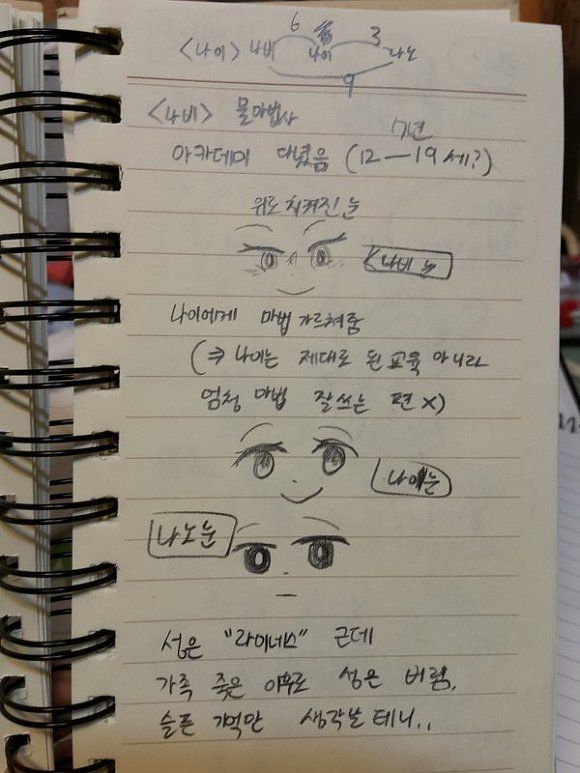 6 3
<나이> 나비 나이 나노
9
<나비> 물마법사
7년
아카데미 다녔음 (12—19세?)
위로 치켜진 눈
<나비 눈
나이에게 마법 가르쳐줌
(⇒ 나이는 제대로 된 교육 아니라
엄청 마법 잘쓰는 편 X)
나이눈
나노눈
성은 "라이네스" 근데
가족 죽은 이후로 성은 버림.
슬픈 기억만 생각날 테니..